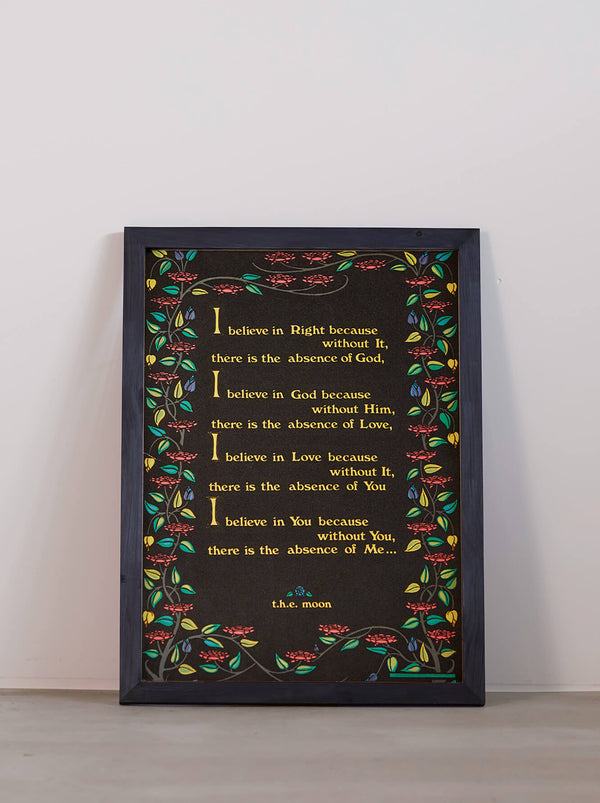 I believe in Right because
without It,
there is the absence of God,
I believe in God because
without Him,
there is the absence of Love,
I believe in Love because
without It,
there is the absence of You
I believe in You because
without You,
there is the absence of Me...
t.h.e. moon